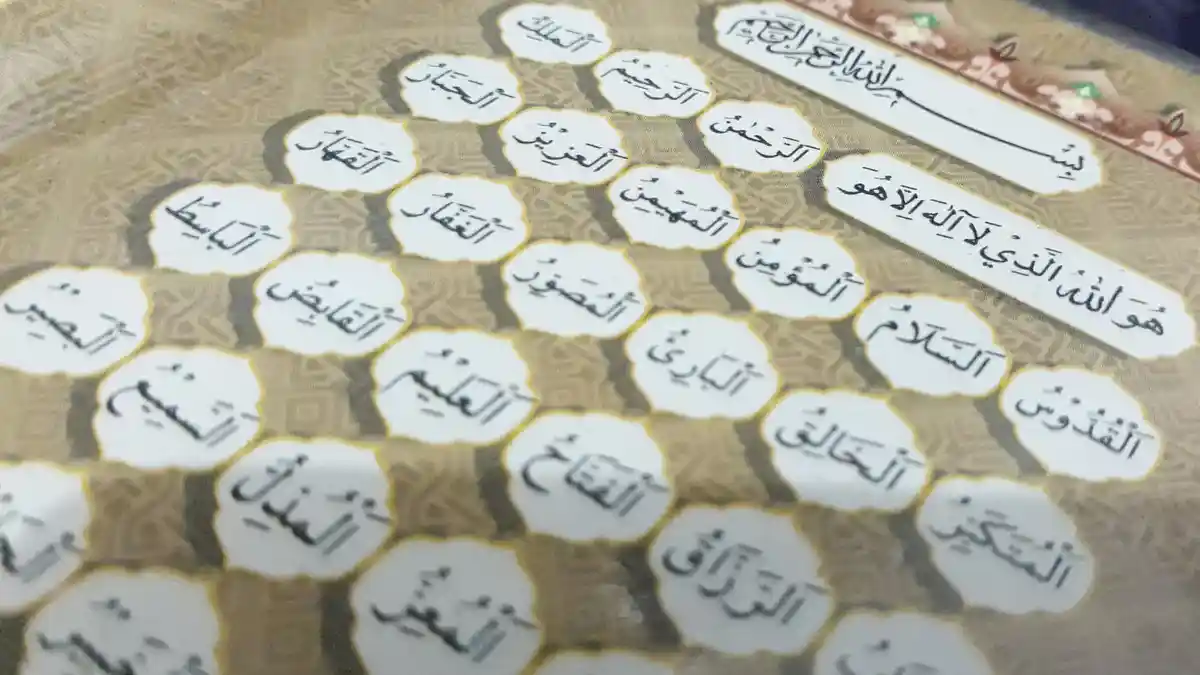 بِسْمِ اللهِ الرَّحْمٰنِ الرَّحِيْمِ
هُوَ اللهُ الَّذِيْ لَا اِلٰهَ اِلَّا هُوَ
اَلرَّحْمٰنُ اَلرَّحِيْمُ اَلْمَلِكُ
اَلْقُدُّوْسُ اَلسَّلَامُ اَلْمُؤْمِنُ اَلْمُهَيْمِنُ اَلْعَزِيْزُ اَلْجَبَّارُ
اَلْمُتَكَبِّرُ اَلْخَالِقُ اَلْبَارِئُ اَلْمُصَوِّرُ اَلْغَفَّارُ اَلْقَهَّارُ
اَلرَّزَّاقُ اَلْفَتَّاحُ اَلْعَلِيْمُ اَلْقَابِضُ اَلْبَاسِطُ
اَلْمُعِزُّ اَلْمُذِلُّ اَلسَّمِيْعُ اَلْبَصِيْرُ